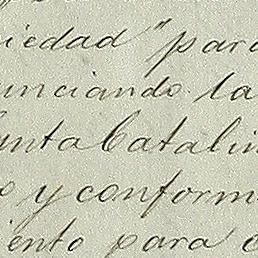 iedad" para
unciando la
anta Catalin
o y conform
iento para